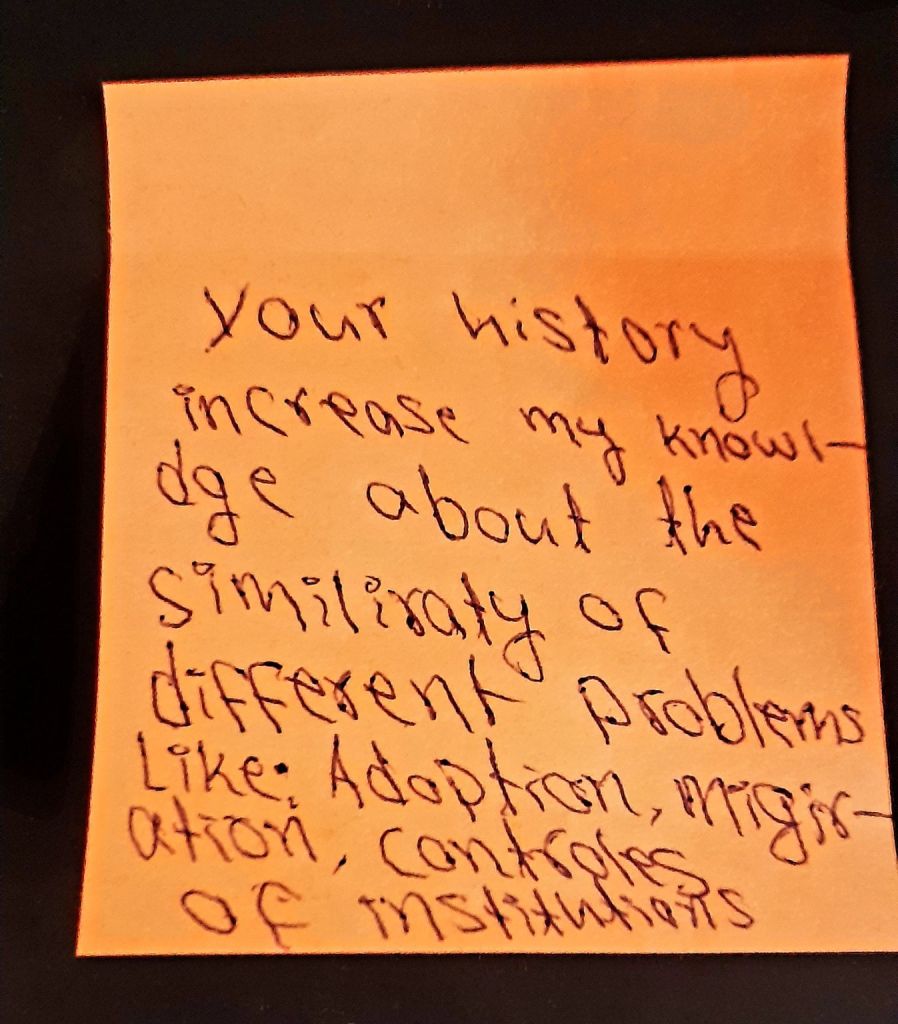 Your history
increase my knowl-
dge about the
similiraty of
different problems
Like: Adoption, migir-
ation, controles
of institutions